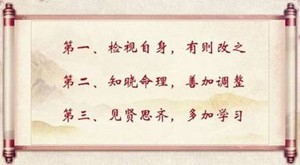 第一、检视自身，有则改之
第二、知晓命理，善加调整
第三、见贤思齐，多加学习